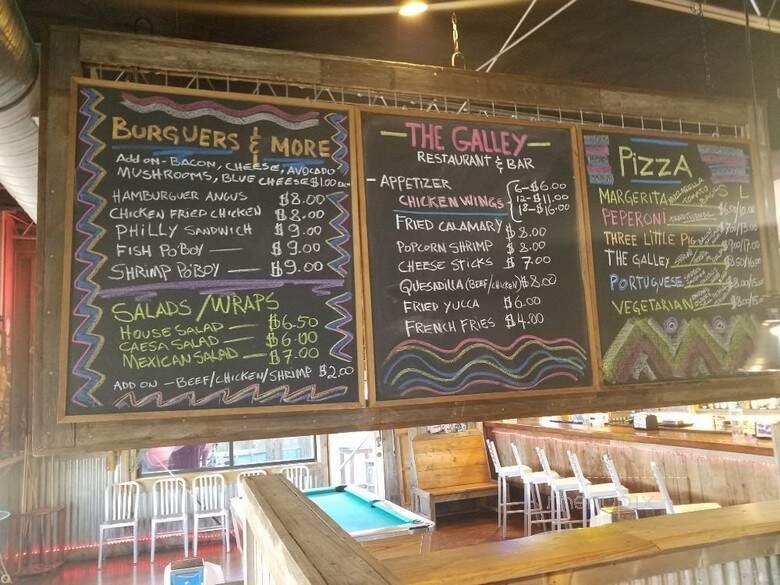 BURGUERS & MORE
ADD ON - BACON, CHEESE, AVOCADO,
MUSHROOMS, BLUE CHEESE $1.00
HAMBURGUER ANGUS $8.00
CHICKEN FRIED CHICKEN $8.00
PHILLY SANDWICH $9.00
FISH PO BOY — $9.00
SHRIMP PO BOY — $9.00
SALADS / WRAPS
HOUSE SALAD — $6.50
CAESA SALAD — $6.00
MEXICAN SALAD — $7.00
ADD ON - BEEF/CHICKEN/SHRIMP $2.00
— THE GALLEY —
RESTAURANT & BAR
- APPETIZER
CHICKEN WINGS
6 - $6.00
12 - $11.00
18 - $16.00
FRIED CALAMARY $8.00
POPCORN SHRIMP $8.00
CHEESE STICKS $7.00
QUESADILLA (BEEF/CHICKEN) $8.00
FRIED YUCCA $6.00
FRENCH FRIES $4.00
PIZZA
S L
MARGERITA
PEPERONI
THREE LITTLE PIG
THE GALLEY
PORTUGUESE
VEGETARIAN